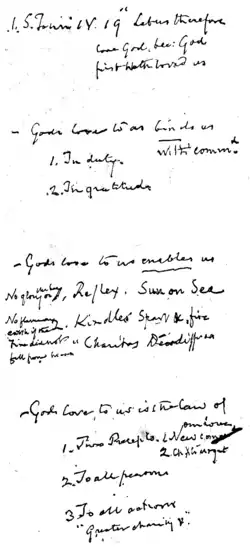 1. S. John IV. 19 "Let us therefore
love God, bec: God
first hath loved us
- Gods love to us binds us
1. In duty. With comm.d
2. In gratitude
- Gods love to us enables us
No glory, Reflex. Sun on Sea
Kindles Spark & fire
Charitas Dei diffusa
fell from heaven
- Gods love to us is the law of
our love
1. Two Precepts. 1. New comm
2.
2. To all persons
3. To all actions
"Greater charity &."